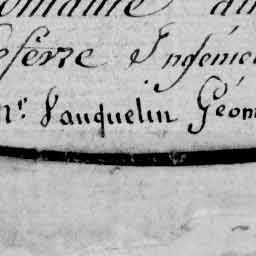 omaine du
efèvre Ingénieu
Mr. Vauquelin Géom